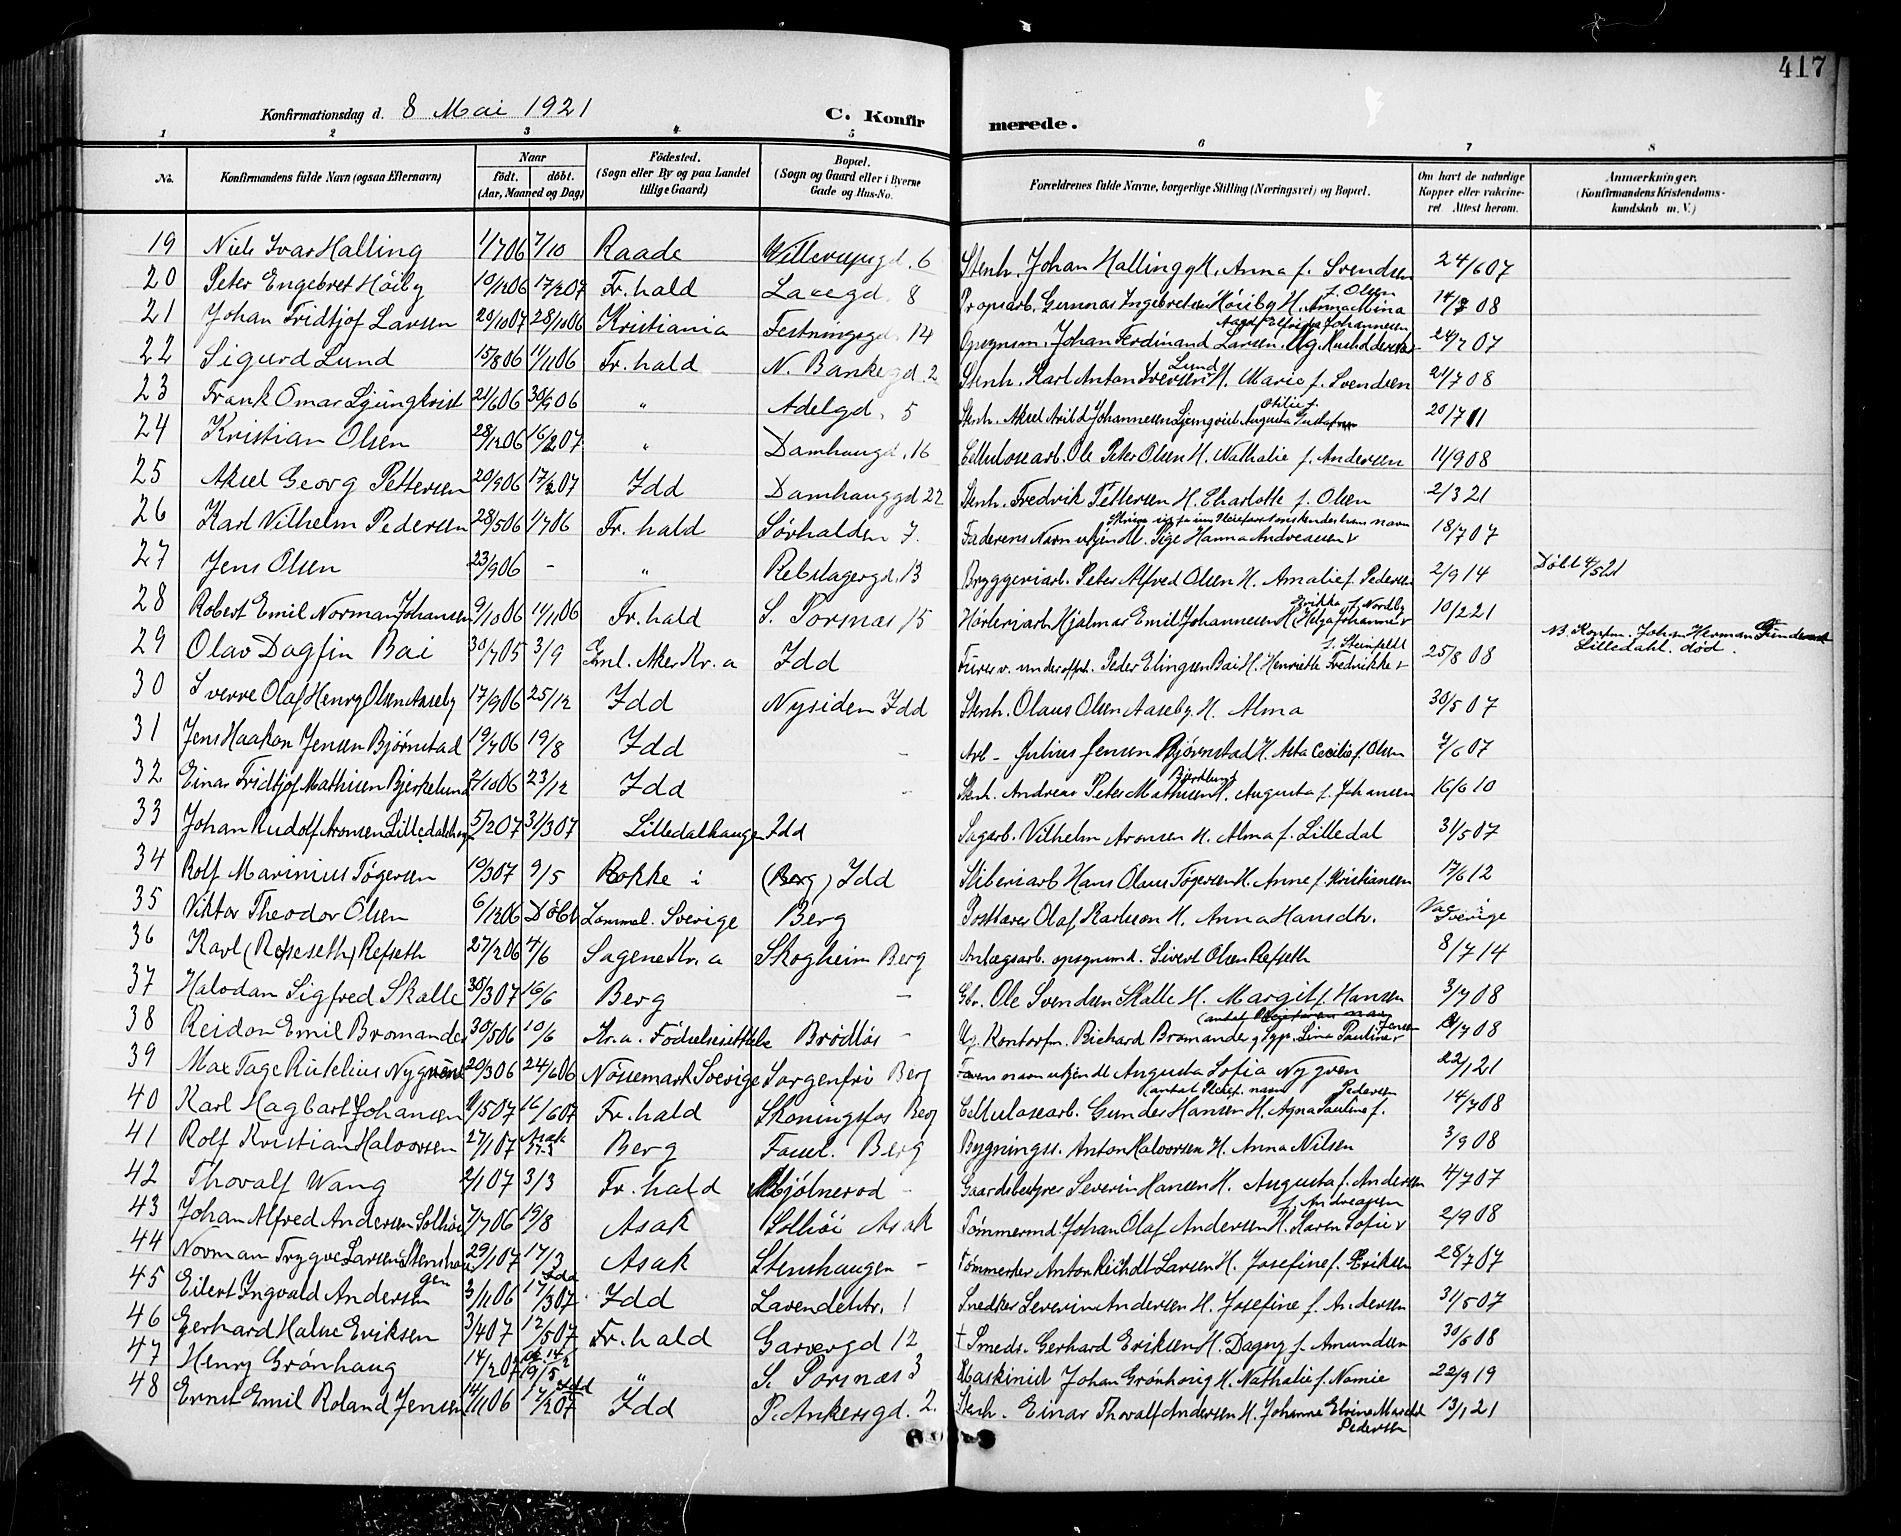 417
Konfirmationsdag d. 8 Mai 1921 C. Konfirmerede.
1 2 3 4 5 6 7 8
No. Konfirmandens fulde Navn (ogsaa Efternavn) Naar født. døbt. (Aar, Maaned og Dag) Fødested. (Sogn eller By og paa Landet tillige Gaard) Bopæl. (Sogn og Gaard eller i Byerne Gade og Hus-No. Forældrenes fulde Navne, borgerlige Stilling (Næringsvei) og Bopæl. Om havt de naturlige Kopper eller vakcineret. Attest herom. Anmærkninger. (Konfirmandens Kristendomskundskab m. V.)
19 Niels Ivar Halling 1/7 06 7/10 Raade 6 Stenh. Johan Halling H. Anna f. Svendsen 24/6 07
20 Peter Engebret Høiby 17/2 07 Fr.hald 8 Ingebretsen Høiby H. Anna Mina f. Olsen 08
21 Johan Fridtjof Larsen 28/10 06 Kristiania Festningsgd. 14 Johan Ferdinand Larsen 24/7 07
22 Sigurd Lund 15/8 06 11/11 06 Fr.hald N. Bankegd 2 Stenh. Karl Anton Iversen Lund H. Marie f. Svendsen 21/7 08
23 Frank Omar Ljungkvist 21/6 06 30/9 06 " Adelgd. 5 Stenh. Aksel Arild Johannesen Ljungvist Augusta Otilie f. Gustafsen 20/7 11
24 Kristian Olsen 28/12 06 16/2 07 " Damhaugd. 16 Cellulosearb. Ole Peter Olsen H. Nathalie f. Andersen 11/9 08
25 Aksel Georg Pettersen 20/9 06 17/2 07 Idd Damhauggd 22 Stenh. Fredrik Pettersen H. Charlotte f. Olsen 2/3 21
26 Karl Vilhelm Pedersen 28/5 06 1/7 06 Fr.hald Sørhalden 7. Faderens Navn Pige Hanna Andreasen 18/7 07
27 Jens Olsen 23/9 06 - " Rebslagergd. 13 Bryggeriarb. Peter Alfred Olsen H. Amalie f. Pedersen 2/9 14 Døbt 4/5 21
28 Robert Emil Norman Johansen 9/10 06 11/11 06 Fr.hald S. Porsnæs 15 Hjalmar Emil Johannesen H. Helga Johanne f. Nordby 10/2 21
29 Olav Dagfin Bai 30/7 05 3/9 Aker Kr.a Idd underoff. Peder Elingsen Bai H. Henriette Fredrikke f. Steinfeldt 25/8 08 NB. Konfm. Johan Herman Lilledahl. død.
30 Sverre Olaf Henry Olsen Aaseby 17/9 06 25/12 Idd Nysiden Idd Stenh. Olaus Olsen Aaseby. H. Alma 30/5 07
31 Jens Haakon Jensen Bjørnstad 19/7 06 19/8 Idd - Arb - Julius Jensen Bjørnstad H. Asta Cecilie f. Olsen 7/6 07
32 Einar Fridtjof Mathisen Bjerkelund 7/10 06 23/12 Idd - Stenh. Andreas Peter Mathisen H. Augusta f. Johansen 16/6 10
33 Johan Rudolf Aronsen Lilledalshaugen 5/2 07 31/3 07 Lilledalhaugen Idd Sagarb. Vilhelm Aronsen H. Alma f. Lilledal 31/5 07
34 Rolf Marinius Tøgersen 10/3 07 9/5 Rokke i (Berg) Idd Sliberiarb Hans Olaus Tøgersen H. Anne f. Kristiansen 17/6 12
35 Viktor Theodor Olsen 6/12 06 Døbt Sverige Berg Postbærer Olaf Karlsson H. Anna Hansdtr. Vac i Sverige
36 Karl (Refseseth) Refseth 27/2 06 4/6 Sagene Kr.a Skogheim Berg Anlægsarb. opsynsmd. Sivert Olsen Refseth 8/7 14
37 Halvdan Sigfred Skalle 30/3 07 16/6 Berg - Gbr. Ole Svendsen Skalle H. Margit f. Hansen 3/7 08
38 Reidar Emil Bromander 30/5 06 10/6 Kr.a. Fødselsstiftelse Brødløs - Ug. Kontorfm. Richard Bromander og Syp. Lina Pauline Jensen 08
39 Max Tage Rutelius Nygren 20/3 06 24/6 06 Nøssemark Sverige Sorgenfri Berg navn ukjendt Augusta Sofia Nygren 22/1 21
40 Karl Hagbart Johansen 9/5 07 16/6 07 Fr.hald Skoningsfos Berg Cellulosearb. Gunder Hansen H. Agna Pauline f. Pedersen 14/7 08
41 Rolf Kristian Halvorsen 27/1 07 Asak Berg Berg Bygningss. Anton Halvorsen H. Anna Nilsen 3/9 08
42 Thoralf Wang 2/1 07 3/3 Fr.hald Mjølnerød - Gaardsbestyrer Severin Hansen H. Augusta f. Andersen 4/7 07
43 Johan Alfred Andersen Solhøi 7/7 06 19/8 Asak Solhøi Asak Tømmermd. Johan Olaf Andersen H. Karen Sofie f. Andreassen 2/9 08
44 Norman Trygve Larsen Stenshaugen 29/1 07 17/3 Asak Stenshaugen - Anton Larsen H. Josefine f. Eriksen 28/7 07
45 Eilert Ingvald Andersen 3/11 06 17/3 07 Idd Lavendelstr. 1 Snedker Severin Andersen H. Josefine f. Andersen 31/5 07
46 Gerhard Halne Eriksen 3/4 07 12/5 07 Fr.hald Garvergd 12 † Smeds. Gerhard Eriksen H. Dagny f. Amundsen 30/6 08
47 Henry Grønhaug 14/2 07 19/5 " S. Porsnæs 3 Maskinist Johan Grønhaug H. Nathalie f. Nomie 22/9 19
48 Ernst Emil Roland Jensen 14/11 06 17/2 07 Idd P. Ankersgd. 2. Stenh. Einar Thoralf Andersen H. Johanne Elvine Pedersen 13/1 21